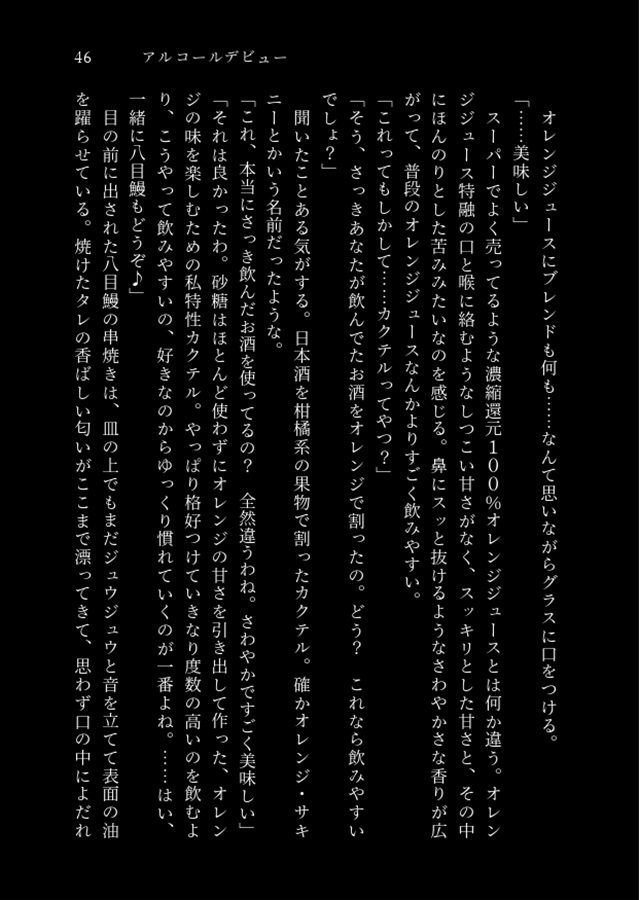 46 アルコールデビュー
オレンジジュースにブレンドも何も……なんて思いながらグラスに口をつける。
「……美味しい」
スーパーでよく売ってるような濃縮還元１００％オレンジジュースとは何か違う。オレン
ジジュース特融の口と喉に絡むようなしつこい甘さがなく、スッキリとした甘さと、その中
にほんのりとした苦みみたいなのを感じる。鼻にスッと抜けるようなさわやかさな香りが広
がって、普段のオレンジジュースなんかよりすごく飲みやすい。
「これってもしかして……カクテルってやつ？」
「そう、さっきあなたが飲んでたお酒をオレンジで割ったの。どう？　これなら飲みやすい
でしょ？」
聞いたことある気がする。日本酒を柑橘系の果物で割ったカクテル。確かオレンジ・サキ
ニーとかいう名前だったような。
「これ、本当にさっき飲んだお酒を使ってるの？　全然違うわね。さわやかですごく美味しい」
「それは良かったわ。砂糖はほとんど使わずにオレンジの甘さを引き出して作った、オレン
ジの味を楽しむための私特性カクテル。やっぱり格好つけていきなり度数の高いのを飲むよ
り、こうやって飲みやすいの、好きなのからゆっくり慣れていくのが一番よね。……はい、
一緒に八目鰻もどうぞ♪」
目の前に出された八目鰻の串焼きは、皿の上でもまだジュウジュウと音を立てて表面の油
を躍らせている。焼けたタレの香ばしい匂いがここまで漂ってきて、思わず口の中によだれ